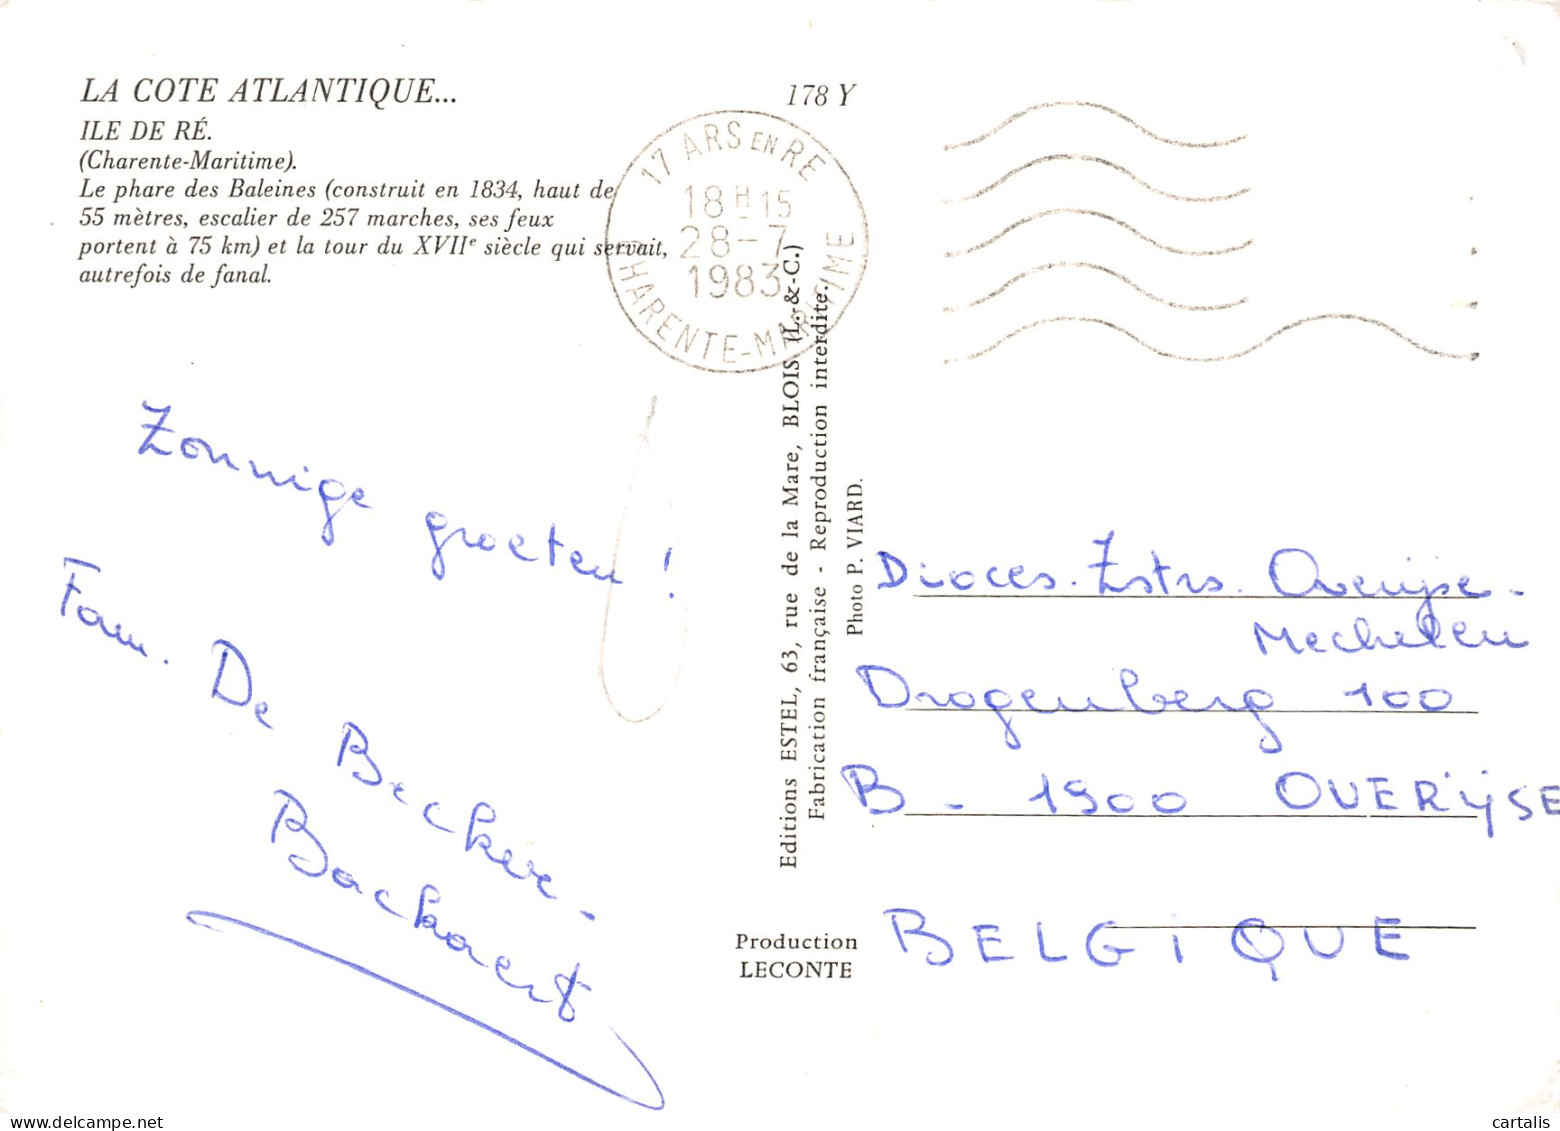 LA COTE ATLANTIQUE...
ILE DE RÉ.
(Charente-Maritime).
Le phare des Baleines (construit en 1834, haut de
55 mètres, escalier de 257 marches, ses feux
portent à 75 km) et la tour du XVIIe siècle qui servait,
autrefois de fanal.
178 Y
17 ARS EN RE
18H15
28-7
1983
CHARENTE-MARITIME
Zonnige groeten !
Fam. De Becker-
Backaert
Editions ESTEL, 63, rue de la Mare, BLOIS (L.-&-C.)
Fabrication française - Reproduction interdite.
Photo P. VIARD.
Production
LECONTE
Dioces. Zstrs. Overijse-
Mechelen
Drogenberg 100
B - 1900 OVERIJSE
BELGIQUE
delcampe.net
cartalis